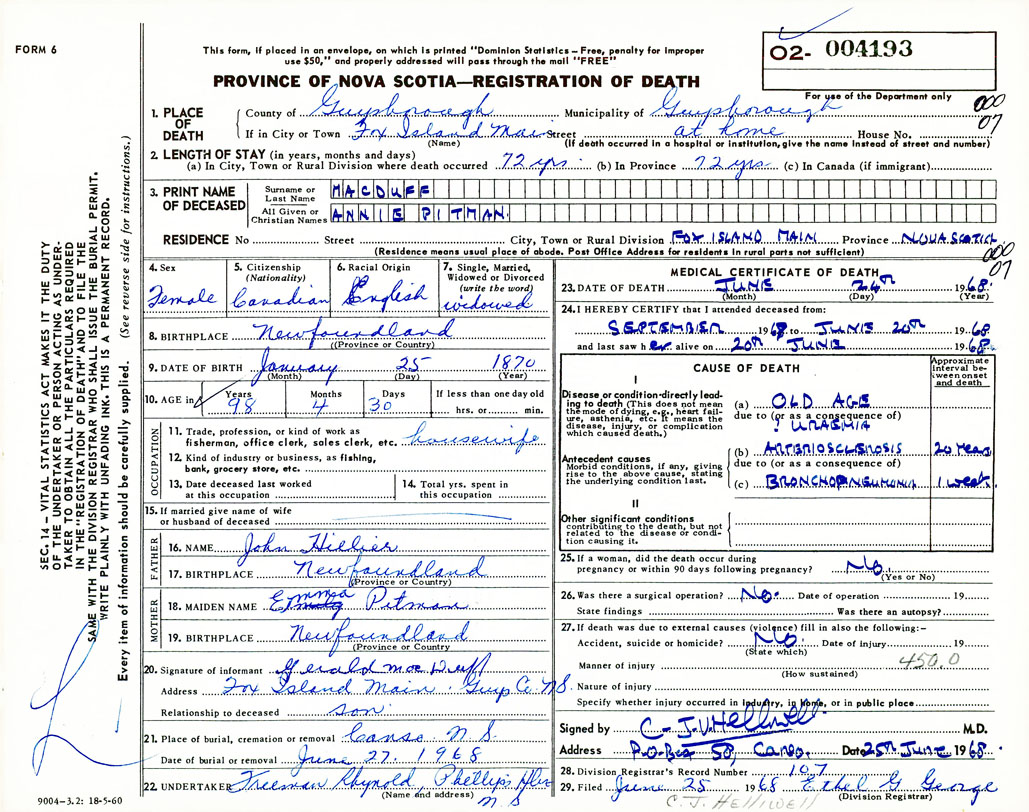 FORM 6
This form, if placed in an envelope, on which is printed "Dominion Statistics – Free, penalty for improper
use $50," and properly addressed will pass through the mail "FREE"
PROVINCE OF NOVA SCOTIA—REGISTRATION OF DEATH
02- 004193
For use of the Department only
000
07
1. PLACE OF DEATH
County of Guysborough Municipality of Guysborough
If in City or Town Fox Island Main Street at home House No.
(Name) (If death occurred in a hospital or institution, give the name instead of street and number)
2. LENGTH OF STAY (in years, months and days)
(a) In City, Town or Rural Division where death occurred 72 yrs. (b) In Province 72 yrs (c) In Canada (if immigrant)
3. PRINT NAME OF DECEASED
Surname or Last Name MACDUFF
All Given or Christian Names ANNIE PITMAN
RESIDENCE No Street City, Town or Rural Division FOX ISLAND MAIN Province NOVA SCOTIA
(Residence means usual place of abode. Post Office Address for residents in rural parts not sufficient)
000
07
4. Sex Female
5. Citizenship (Nationality) Canadian
6. Racial Origin English
7. Single, Married, Widowed or Divorced (write the word) widowed
8. BIRTHPLACE Newfoundland
(Province or Country)
9. DATE OF BIRTH January 25 1870
(Month) (Day) (Year)
10. AGE in Years 98 Months 4 Days 30 If less than one day old hrs. or min.
OCCUPATION
11. Trade, profession, or kind of work as
fisherman, office clerk, sales clerk, etc. housewife
12. Kind of industry or business, as fishing,
bank, grocery store, etc.
13. Date deceased last worked
at this occupation
14. Total yrs. spent in
this occupation
15. If married give name of wife
or husband of deceased
FATHER
16. NAME John Hillier
17. BIRTHPLACE Newfoundland
(Province or Country)
MOTHER
18. MAIDEN NAME Emma Pitman
19. BIRTHPLACE Newfoundland
(Province or Country)
20. Signature of informant Gerald mac Duff
Address Fox Island Main Guys Co. N.S.
Relationship to deceased son
21. Place of burial, cremation or removal Canso N S.
Date of burial or removal June 27. 1968
22. UNDERTAKER Freeman Rhynold, Phillips Hbr
(Name and address) N S
9004–3.2: 18-5-60
MEDICAL CERTIFICATE OF DEATH
23. DATE OF DEATH JUNE 24th 1968.
(Month) (Day) (Year)
24. I HEREBY CERTIFY that I attended deceased from:
SEPTEMBER 1968 to JUNE 20th 1968
and last saw her alive on 20th JUNE 1968.
CAUSE OF DEATH
Approximate interval between onset and death
I
Disease or condition directly leading to death (This does not mean the mode of dying, e.g., heart failure, asthenia, etc. It means the disease, injury, or complication which caused death.)
(a) OLD AGE
due to (or as a consequence of)
? URAEMIA
Antecedent causes
Morbid conditions, if any, giving rise to the above cause, stating the underlying condition last.
(b) ARTERIOSCLEROSIS 20 years
due to (or as a consequence of)
(c) BRONCHOPNEUMONIA 1 week.
II
Other significant conditions
contributing to the death, but not related to the disease or condition causing it.
25. If a woman, did the death occur during
pregnancy or within 90 days following pregnancy? No.
(Yes or No)
26. Was there a surgical operation? No. Date of operation 19
State findings Was there an autopsy?
27. If death was due to external causes (violence) fill in also the following:–
Accident, suicide or homicide? No Date of injury 19
(State which)
Manner of injury 450.0
(How sustained)
Nature of injury
Specify whether injury occurred in industry, in home, or in public place
Signed by C. J. V. Helliwell M.D.
Address P.O. Box 58, Canso. Date 25th June 1968.
28. Division Registrar's Record Number 107
29. Filed June 25 1968 Ethel G George
(Division Registrar)
C. J. HELLIWELL
SEC. 14 – VITAL STATISTICS ACT MAKES IT THE DUTY
OF THE UNDERTAKER OR PERSON ACTING AS UNDER-
TAKER TO OBTAIN ALL THE PARTICULARS REQUIRED
IN THE "REGISTRATION OF DEATH" AND TO FILE THE
SAME WITH THE DIVISION REGISTRAR WHO SHALL ISSUE THE BURIAL PERMIT.
WRITE PLAINLY WITH UNFADING INK. THIS IS A PERMANENT RECORD.
Every item of information should be carefully supplied. (See reverse side for instructions.)